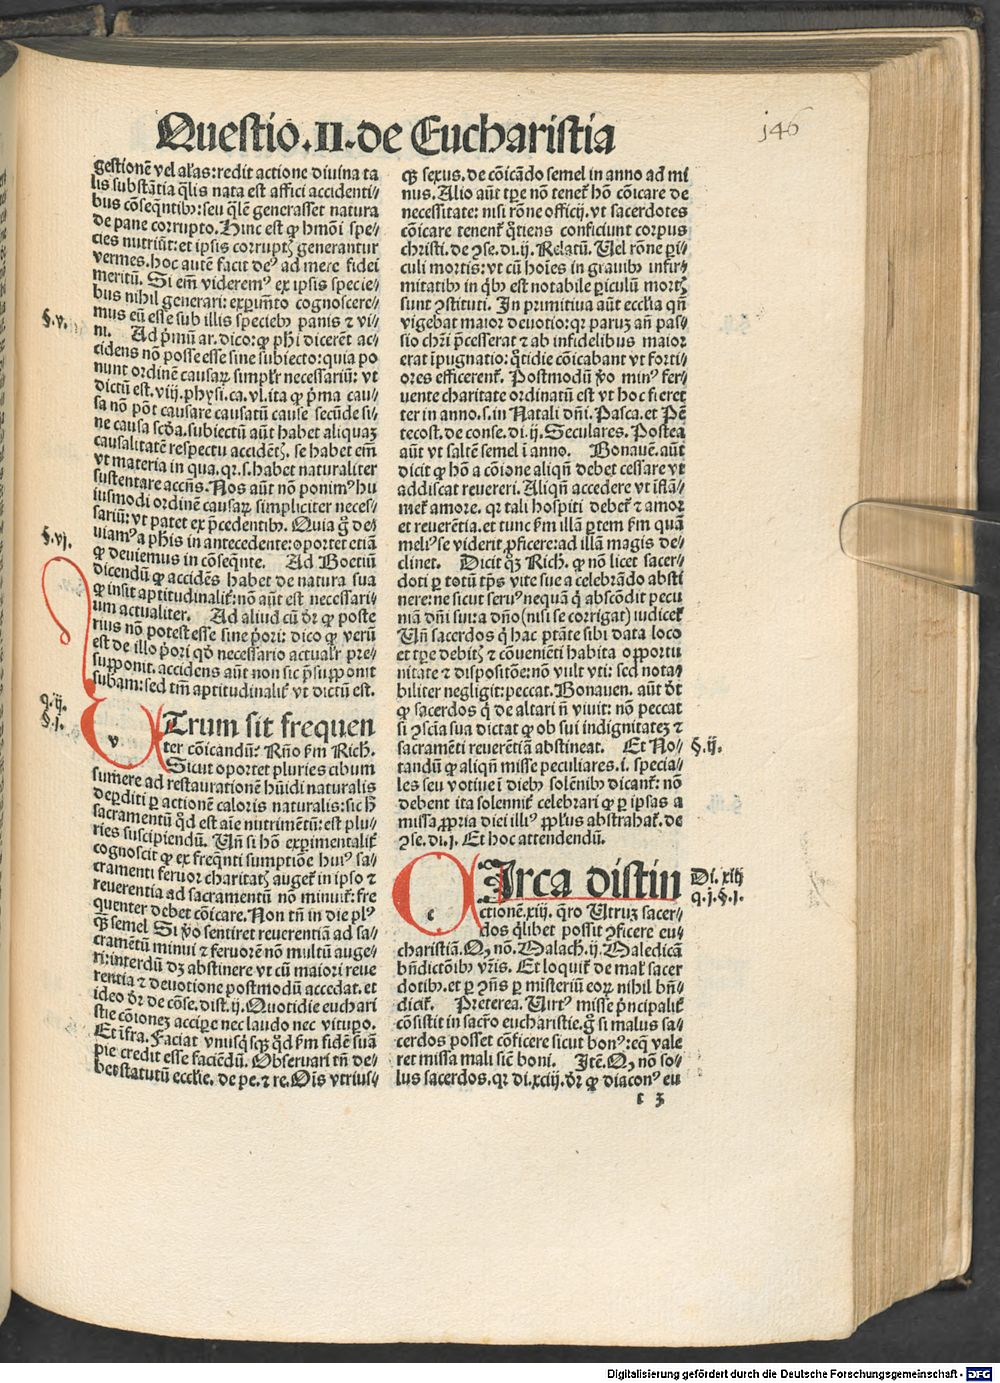 Questio.II.de Eucharistia
146
gestionē vel al'as: redit actione diuina ta
lis substātia q̄lis nata est affici accidenti⸗
bus cōseqntibꝰ: seu q̄lē generasset natura
de pane corrupto. Hinc est ꝙ hmōi spe⸗
cies nutriūt: et ipsis corruptꝭ generantur
vermes. hoc autē facit deꝰ ad mere fidei
meritū. Si em̄ videremꝰ ex ipsis specie⸗
bus nihil generari: exꝑimēto cognoscere⸗
mus eū esse sub illis speciebꝰ panis ⁊ vi⸗
§.v.
ni. Ad pͥmū ar. dico: ꝙ phi dicerēt ac⸗
cidens nō posse esse sine subiecto: quia po
nunt ordinē causaꝝ simplr̄ necessariū: vt
dictū est. viij. physi. ca. vl. ita ꝙ pͥma cau⸗
sa nō pōt causare causatū cause secūde si⸗
ne causa scd̄a. subiectū aūt habet aliquaꝫ
causalitatē respectu accidētꝭ. se habet em̄
vt materia in qua. qr. s. habet naturaliter
sustentare accn̄s. Nos aūt nō ponimꝰ hu
iusmodi ordinē causaꝝ simpliciter neces⸗
sariū: vt patet ex p̄cedentibꝰ. Quia gͦ de⸗
§.vj.
uiamꝰ a phis in antecedente: oportet etiā
ꝙ deuiemus in cōseqn̄te. Ad Boetiū
dicendū ꝙ accidēs habet de natura sua
ꝙ insit aptitudinalit̄: nō aūt est necessari⸗
um actualiter. Ad aliud cū dr̄ ꝙ poste
rius nō potest esse sine pͥori: dico ꝙ verū
est de illo pͥori qd̄ necessario actualr̄ pre⸗
supponit. accidens aūt non sic p̄supponit
subam: sed tm̄ aptitudinalit̄ vt dictū est.
q.ij.
§.j.
v
Trum sit frequen
ter cōicandū: Rn̄o ẜm Rich.
Sicut oportet pluries cibum
sumere ad restaurationē hūidi naturalis
deꝑditi ꝑ actionē caloris naturalis: sic h̄
sacramentū qd̄ est aīe nutrimētū: est plu⸗
ries suscipiendū. Un̄ si hō experimentalit̄
cognoscit ꝙ ex freqn̄ti sumptiōe huiꝰ sa⸗
cramenti feruor charitatꝭ auget̄ in ipso ⁊
reuerentia ad sacramentū nō minuit̄: fre
quenter debet cōicare. Non tn̄ in die plꝰ
ꝙ̄ semel. Si v̊o sentiret reuerentiā ad sa⸗
cramētū minui ⁊ feruorē nō multū auge⸗
ri: interdū dꝫ abstinere vt cū maiori reue
rentia ⁊ deuotione postmodū accedat. et
ideo dr̄ de cōse. dist. ij. Quotidie euchari
stie cōionez accipe nec laudo nec vitupo.
Et īfra. Faciat vnusqsꝗ qd̄ ẜm fidē suā
pie credit esse faciēdū. Obseruari tn̄ de⸗
bet statutū ecclie. de pe. ⁊ re. Oīs vtrius⸗
ꝗ sexus. de cōicādo semel in anno ad mi
nus. Alio aūt tꝑe nō tenet̄ hō cōicare de
necessitate: nisi rōne officij. vt sacerdotes
cōicare tenent̄ qͦtiens conficiunt corpus
christi. de ꝯse. di. ij. Relatū. Uel rōne ꝑi⸗
culi mortis: vt cū hoīes in grauibꝰ infir⸗
mitatibꝰ in qͥbꝰ est notabile ꝑiculū mortꝭ
sunt ꝯstituti. In primitiua aūt ecclia qn̄
vigebat maior deuotio: qr paruꝫ an̄ pas⸗
sio chrī p̄cesserat ⁊ ab infidelibus maior
erat īpugnatio: qͦtidie cōicabant vt forti⸗
ores efficerent̄. Postmodū v̊o minꝰ fer⸗
uente charitate ordinatū est vt hoc fieret
ter in anno. s. in Natali dn̄i. Pasca. et Pē
tecost. de conse. di. ij. Seculares. Postea
aūt vt saltē semel ī anno. Bonauē. aūt
dicit ꝙ hō a cōione aliqn̄ debet cessare vt
addiscat reuereri. Aliqn̄ accedere vt īflā⸗
met̄ amore. qr tali hospiti debet̄ ⁊ amor
et reuerētia. et tunc ẜm illā ꝑtem ẜm quā
meliꝰ se viderit ꝓficere: ad illā magis de⸗
clinet. Dicit qͦꝫ Rich. ꝙ nō licet sacer⸗
doti ꝑ totū tp̄s vite sue a celebrādo absti
nere: ne sicut seruꝰ nequā qͥ abscōdit pecu
niā dn̄i sui: a dn̄o (nisi se corrigat) iudicet̄
Un̄ sacerdos qͥ hac ptāte sibi data loco
et tꝑe debitꝭ ⁊ cōueniēti habita opportu
nitate ⁊ dispositōe: nō vult vti: sed nota⸗
biliter negligit: peccat. Bonauen. aūt dt̄
ꝙ sacerdos qͥ de altari nō viuit: nō peccat
si ꝯscia sua dictat ꝙ ob sui indignitatez ⁊
sacramēti reuerētiā abstineat. Et No⸗
§.ij.
tandū ꝙ aliqn̄ misse peculiares. i. specia⸗
les seu votiue ī diebꝰ solēnibꝰ dicant̄: nō
debent ita solennit̄ celebrari ꝙ ꝑ ipsas a
missa ꝓpria diei illiꝰ ppl'us abstrahat̄. de
ꝯse. di. j. Et hoc attendendū.
c
Irca distin
Di. xiij
q.j.§.j.
ctionē. xiij. qͣro Utruꝫ sacer⸗
dos qͥlibet possit ꝯficere eu⸗
charistiā. Qꝫ nō. Malach. ij. Maledicā
bn̄dictōibꝰ vr̄is. Et loquit̄ de mal' sacer
dotibꝰ. et ꝑ ꝯn̄s ꝑ misteriū eoꝝ nihil bn̄⸗
dicit̄. Preterea. Uirtꝰ misse pͥncipalit̄
cōsistit in sacro eucharistie. gͦ si malus sa⸗
cerdos posset cōficere sicut bonꝰ: eqꝫ vale
ret missa mali sicē boni. Itē. Qꝫ nō so⸗
lus sacerdos. qr di. xciij. dr̄ ꝙ diaconꝰ eu
t 3
Digitalisierung gefördert durch die Deutsche Forschungsgemeinschaft - DFG